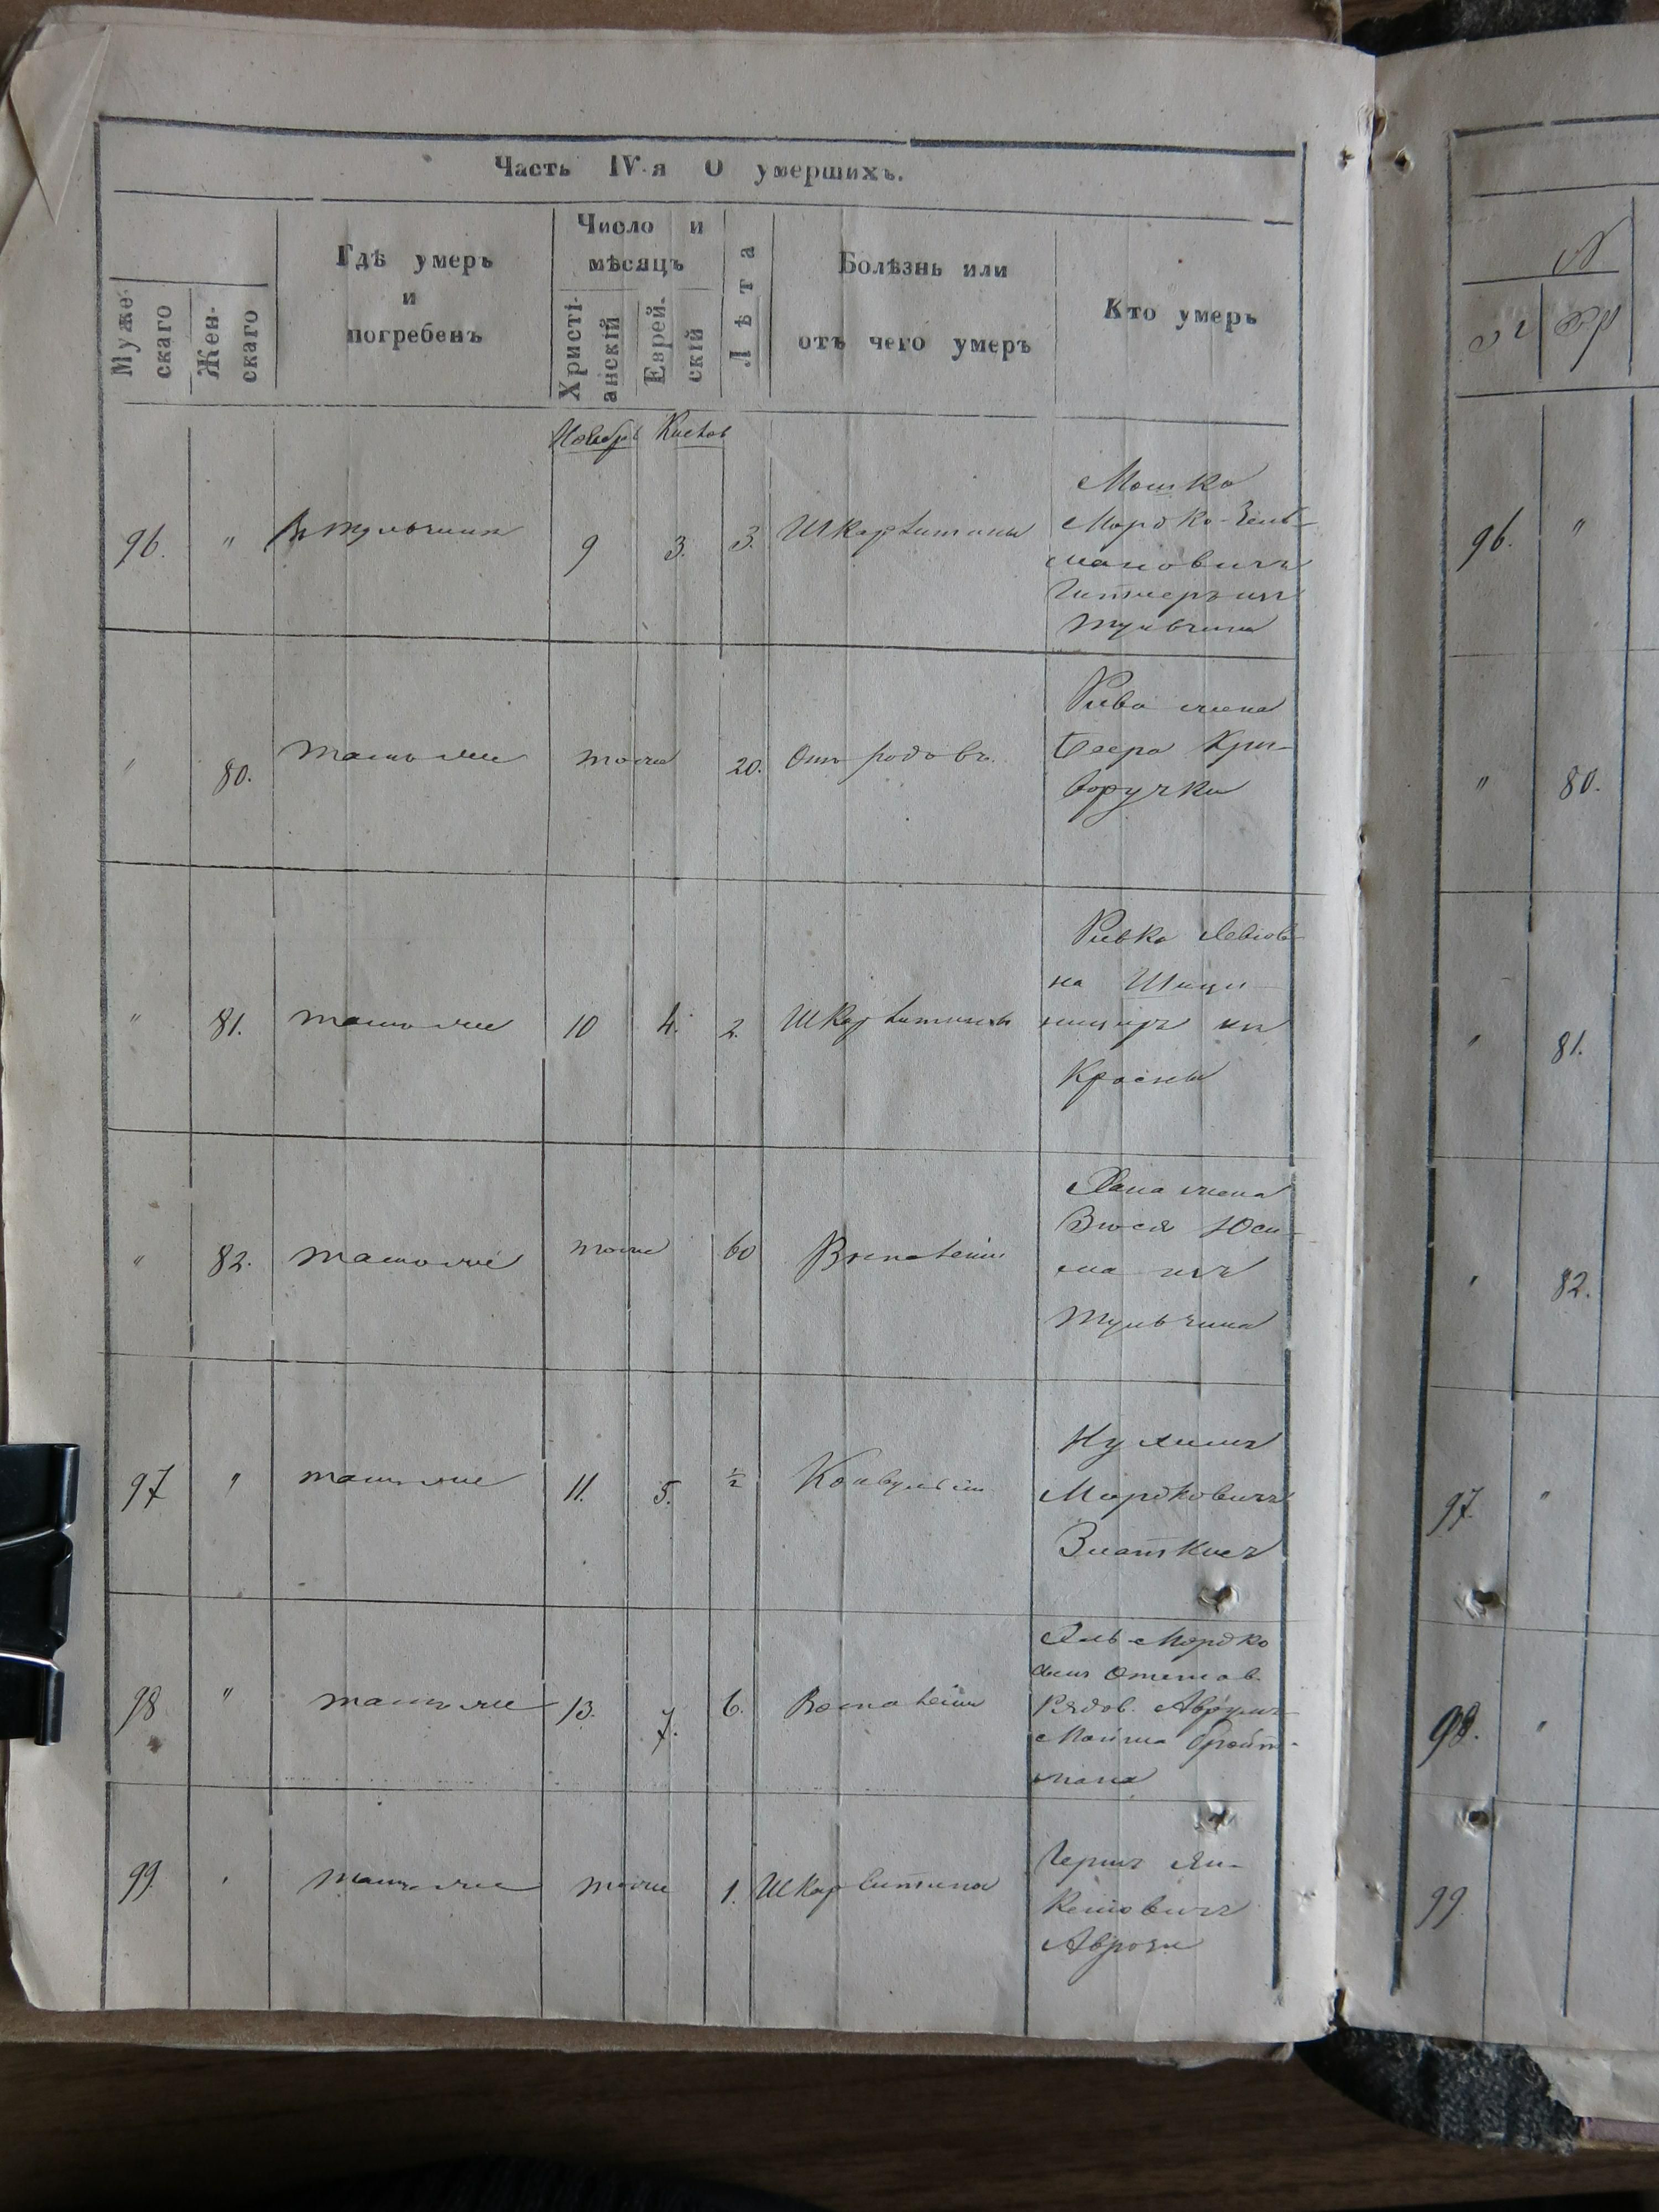 Часть IV-я О умершихъ.
Муже-
скаго
Жен-
скаго
Гдѣ умеръ
и
погребенъ
Число и
мѣсяцъ
Христі-
анскій
Еврей-
скій
Лѣта
Болѣзнь или
отъ чего умеръ
Кто умеръ
Ноябрь Кислов
96. " В Тульчинѣ 9 3. 3. Шкарлатины
Мошко
Мордко-Зель-
мановичъ
изъ
Тульчина
" 80. тамъ же тоже 20. Отъ родовъ
Рива жена
Беера Кри-
воручки
" 81. тамъ же 10 4. 2. Шкарлатины
Ривка Лейбов-
на
изъ
Красны
" 82. тамъ же тоже 60 Воспаленіи
Хана жена
Зюся Юси-
ма изъ
Тульчина
97 " тамъ же 11. 5. ½ Конвульсіи
Нухимъ
Мордковичъ
Златкисъ
98 " тамъ же 13. 7. 6. Воспаленіи
Мордко
сынъ отстав.
Рядов. Аврумъ-
Мойша Бройт-
мана
99. " тамъ же тоже 1. Шкарлатина
Гершъ Ян-
келовичъ
96. "
" 80.
" 81.
" 82.
97. "
98. "
99.